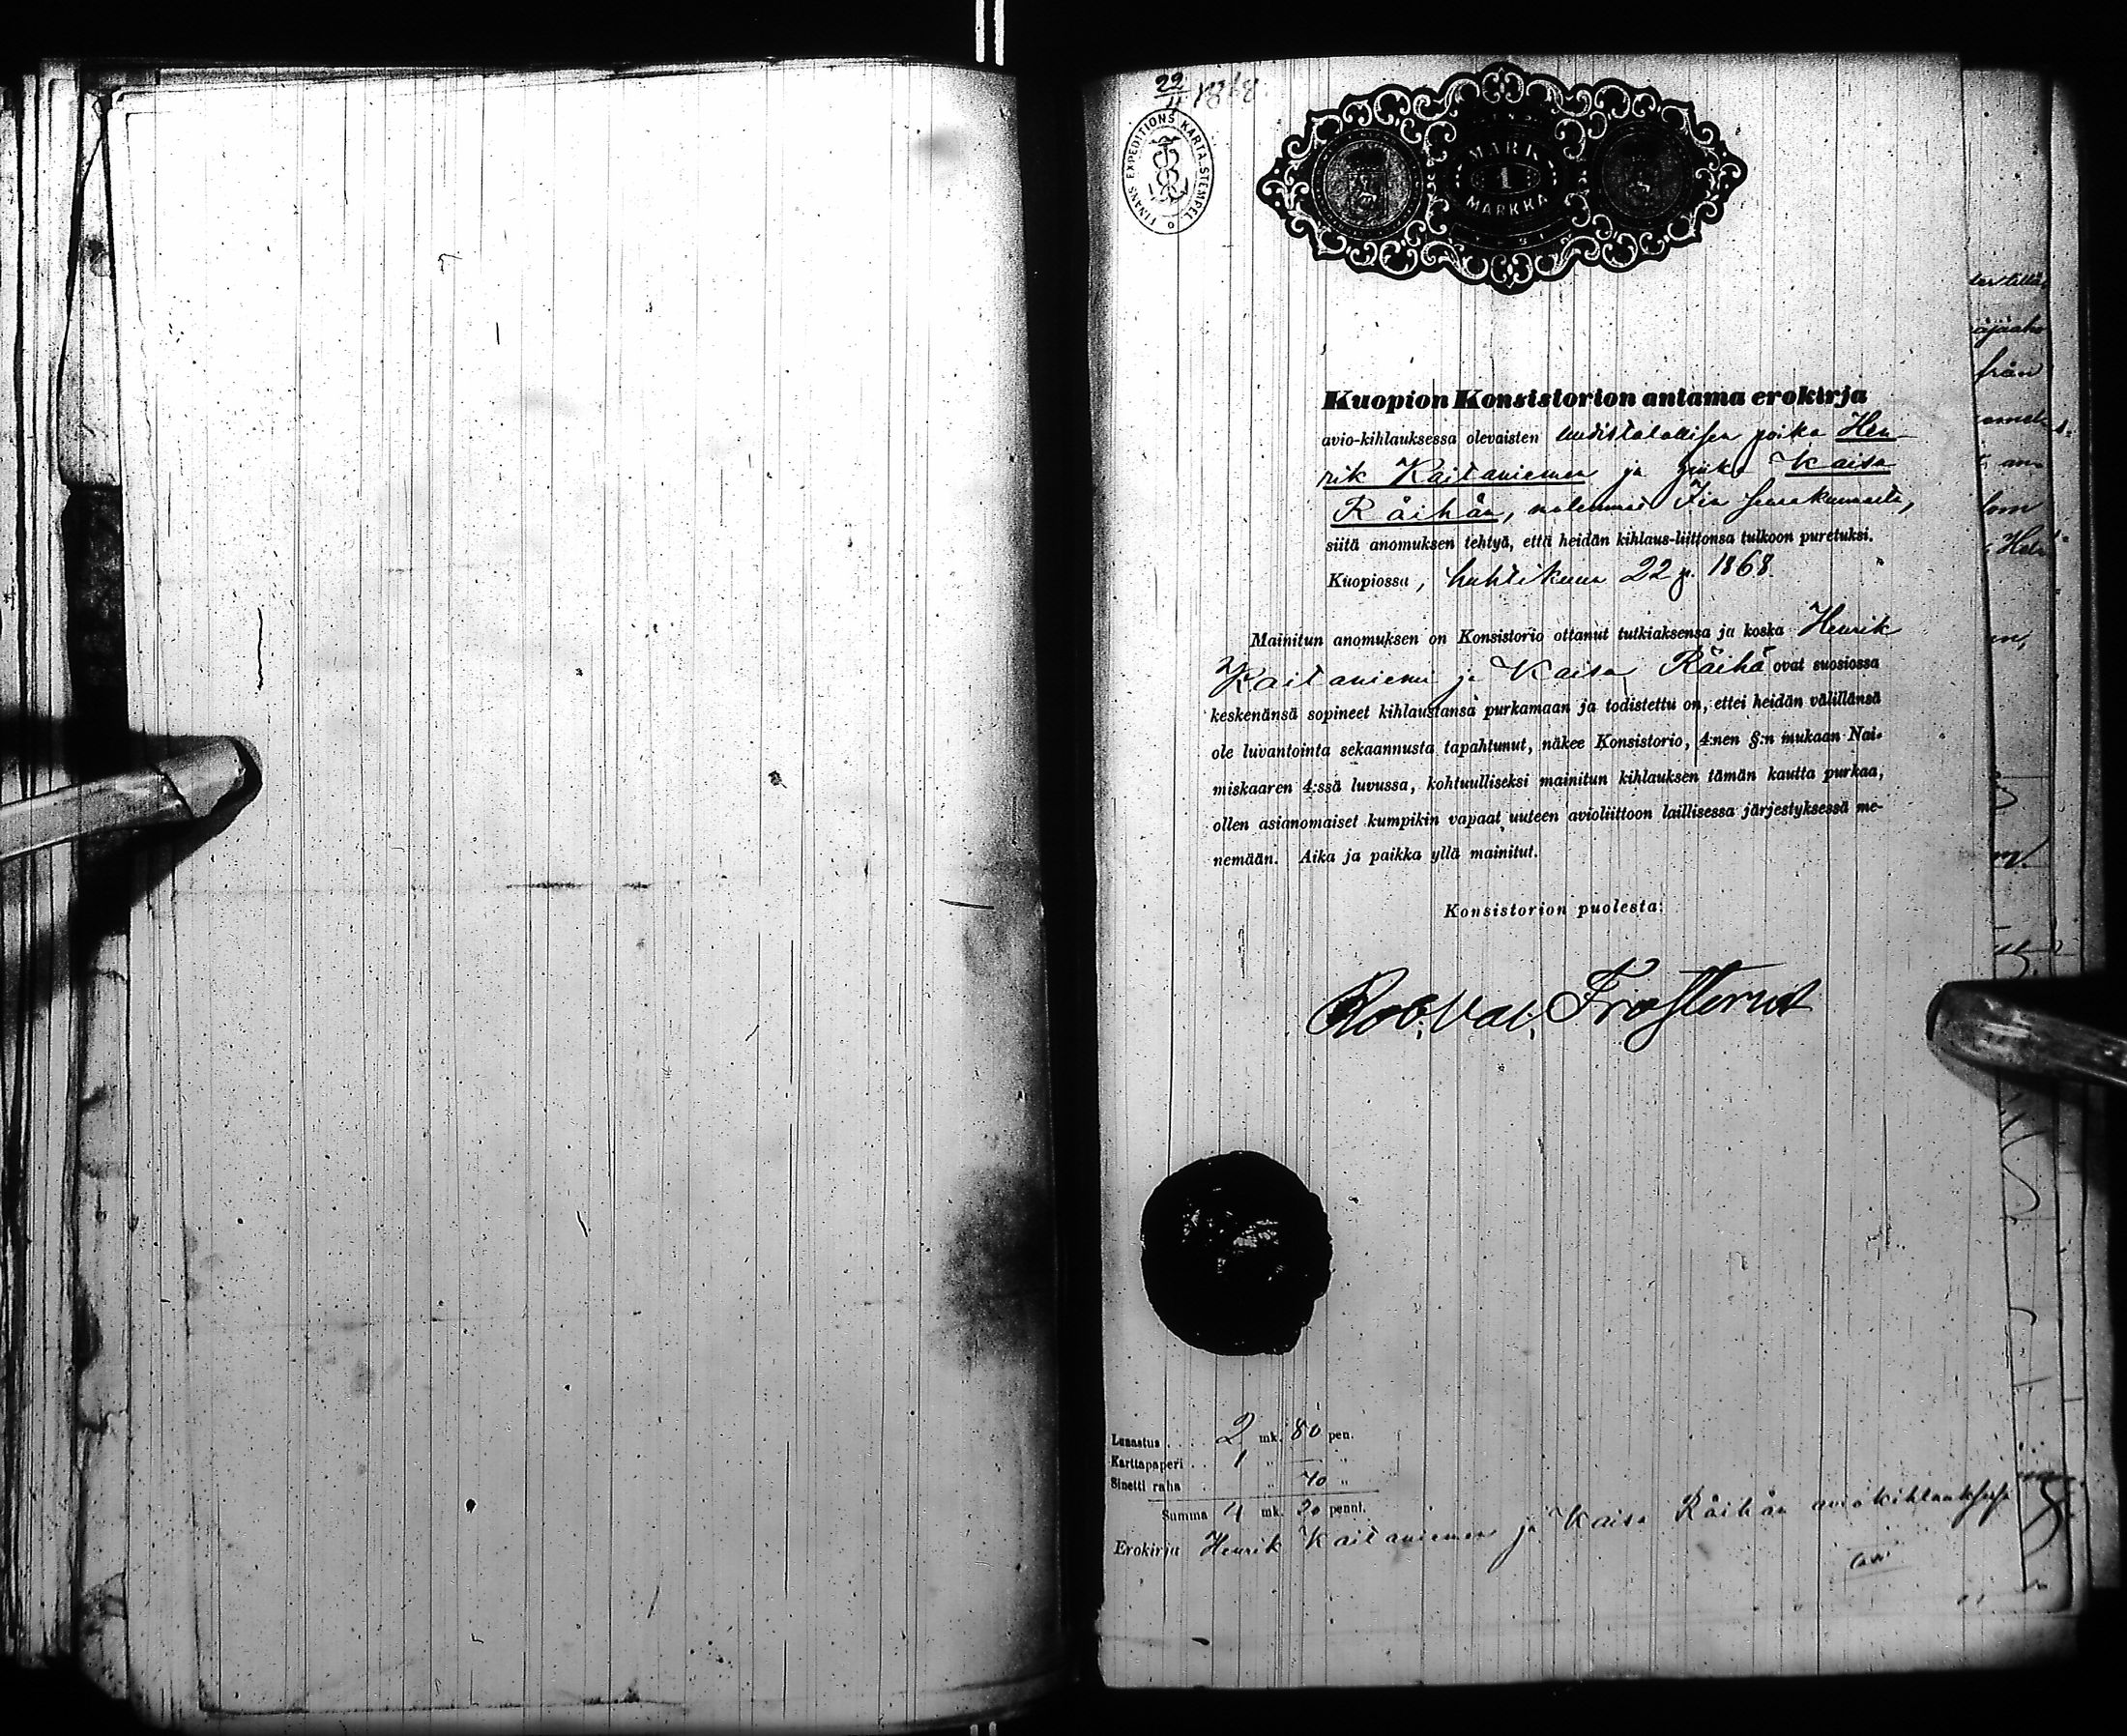 22/4 1868.
FINANS EXPEDITIONS KARTA STEMPEL
MARK
1
MARKKA
Kuopion Konsistorion antama erokirja
avio-kihlauksessa olevaisten uudistalollisen poika Hen-
rik Kaitaniemen ja piika Kaisa
Räihän, molemmat Iin seurakunnasta,
siitä anomuksen tehtyä, että heidän kihlaus-liittonsa tulkoon puretuksi.
Kuopiossa, huhtikuun 22 p. 1868.
Mainitun anomuksen on Konsistorio ottanut tutkiaksensa ja koska Henrik
Kaitaniemi ja Kaisa Räihä ovat suosiossa
keskenänsä sopineet kihlaustansa purkamaan ja todistettu on, ettei heidän välillänsä
ole luvantointa sekaannusta tapahtunut, näkee Konsistorio, 4:nen §:n mukaan Nai-
miskaaren 4:ssä luvussa, kohtuulliseksi mainitun kihlauksen tämän kautta purkaa,
ollen asianomaiset kumpikin vapaat uuteen avioliittoon laillisessa järjestyksessä me-
nemään. Aika ja paikka yllä mainitut.
Konsistorion puolesta:
Rob. Val. Frosterus
Lunastus . . . 2 mk. 80 pen.
Karttapaperi . . 1 " — "
Sinetti raha . " 40 "
Summa 4 mk. 20 penni.
Erokirja Henrik Kaitaniemen ja Kaisa Räihän aviokihlauksessa
från